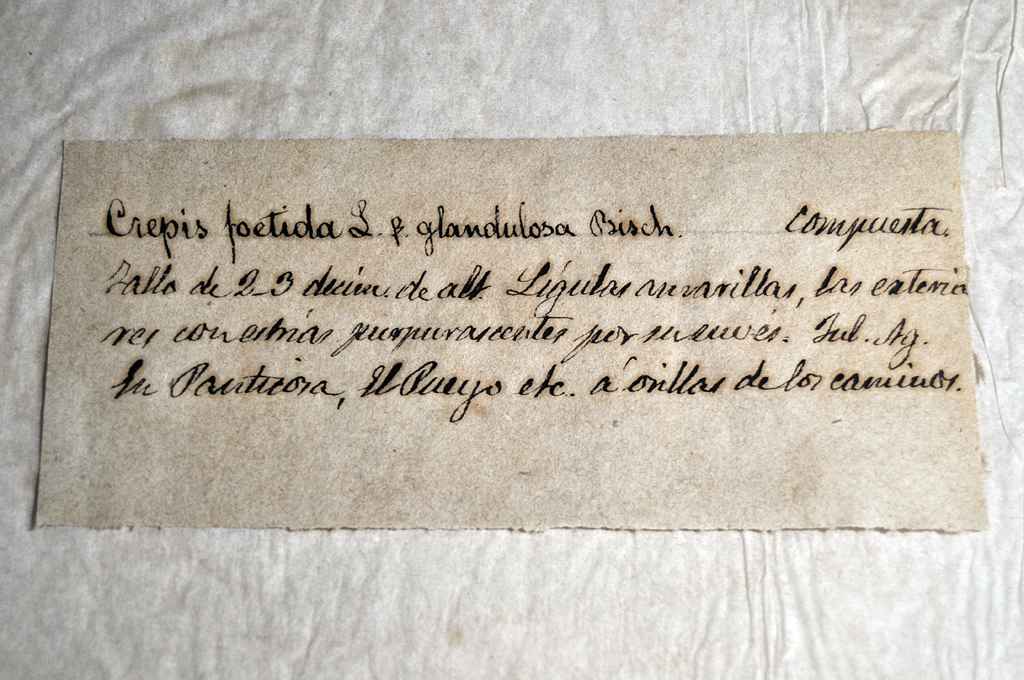 Crepis foetida L. β. glandulosa Bisch. Compuesta.
Tallo de 2-3 decim. de alt. Lígulas amarillas, las exterio
res con estrías purpurascentes por su envés. Jul. Ag.
En Panticosa, El Pueyo etc. á orillas de los caminos.